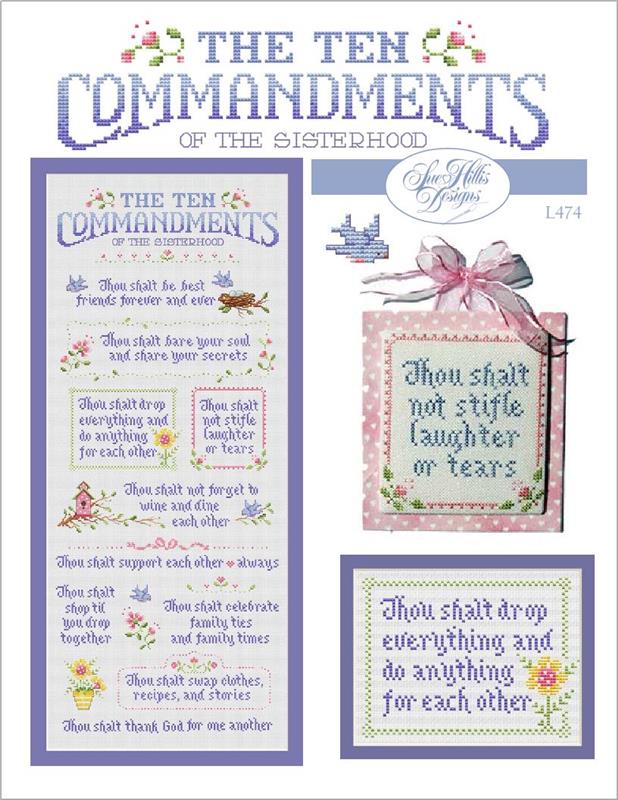 THE TEN
COMMANDMENTS
OF THE SISTERHOOD
Sue Hillis
Designs
L474
THE TEN
COMMANDMENTS
OF THE SISTERHOOD
Thou shalt be best
friends forever and ever
Thou shalt bare your soul
and share your secrets
Thou shalt drop
everything and
do anything
for each other
Thou shalt
not stifle
laughter
or tears
Thou shalt not forget to
wine and dine
each other
Thou shalt support each other always
Thou shalt
shop til
you drop
together
Thou shalt celebrate
family ties
and family times
Thou shalt swap clothes,
recipes, and stories
Thou shalt thank God for one another
Thou shalt
not stifle
laughter
or tears
Thou shalt drop
everything and
do anything
for each other